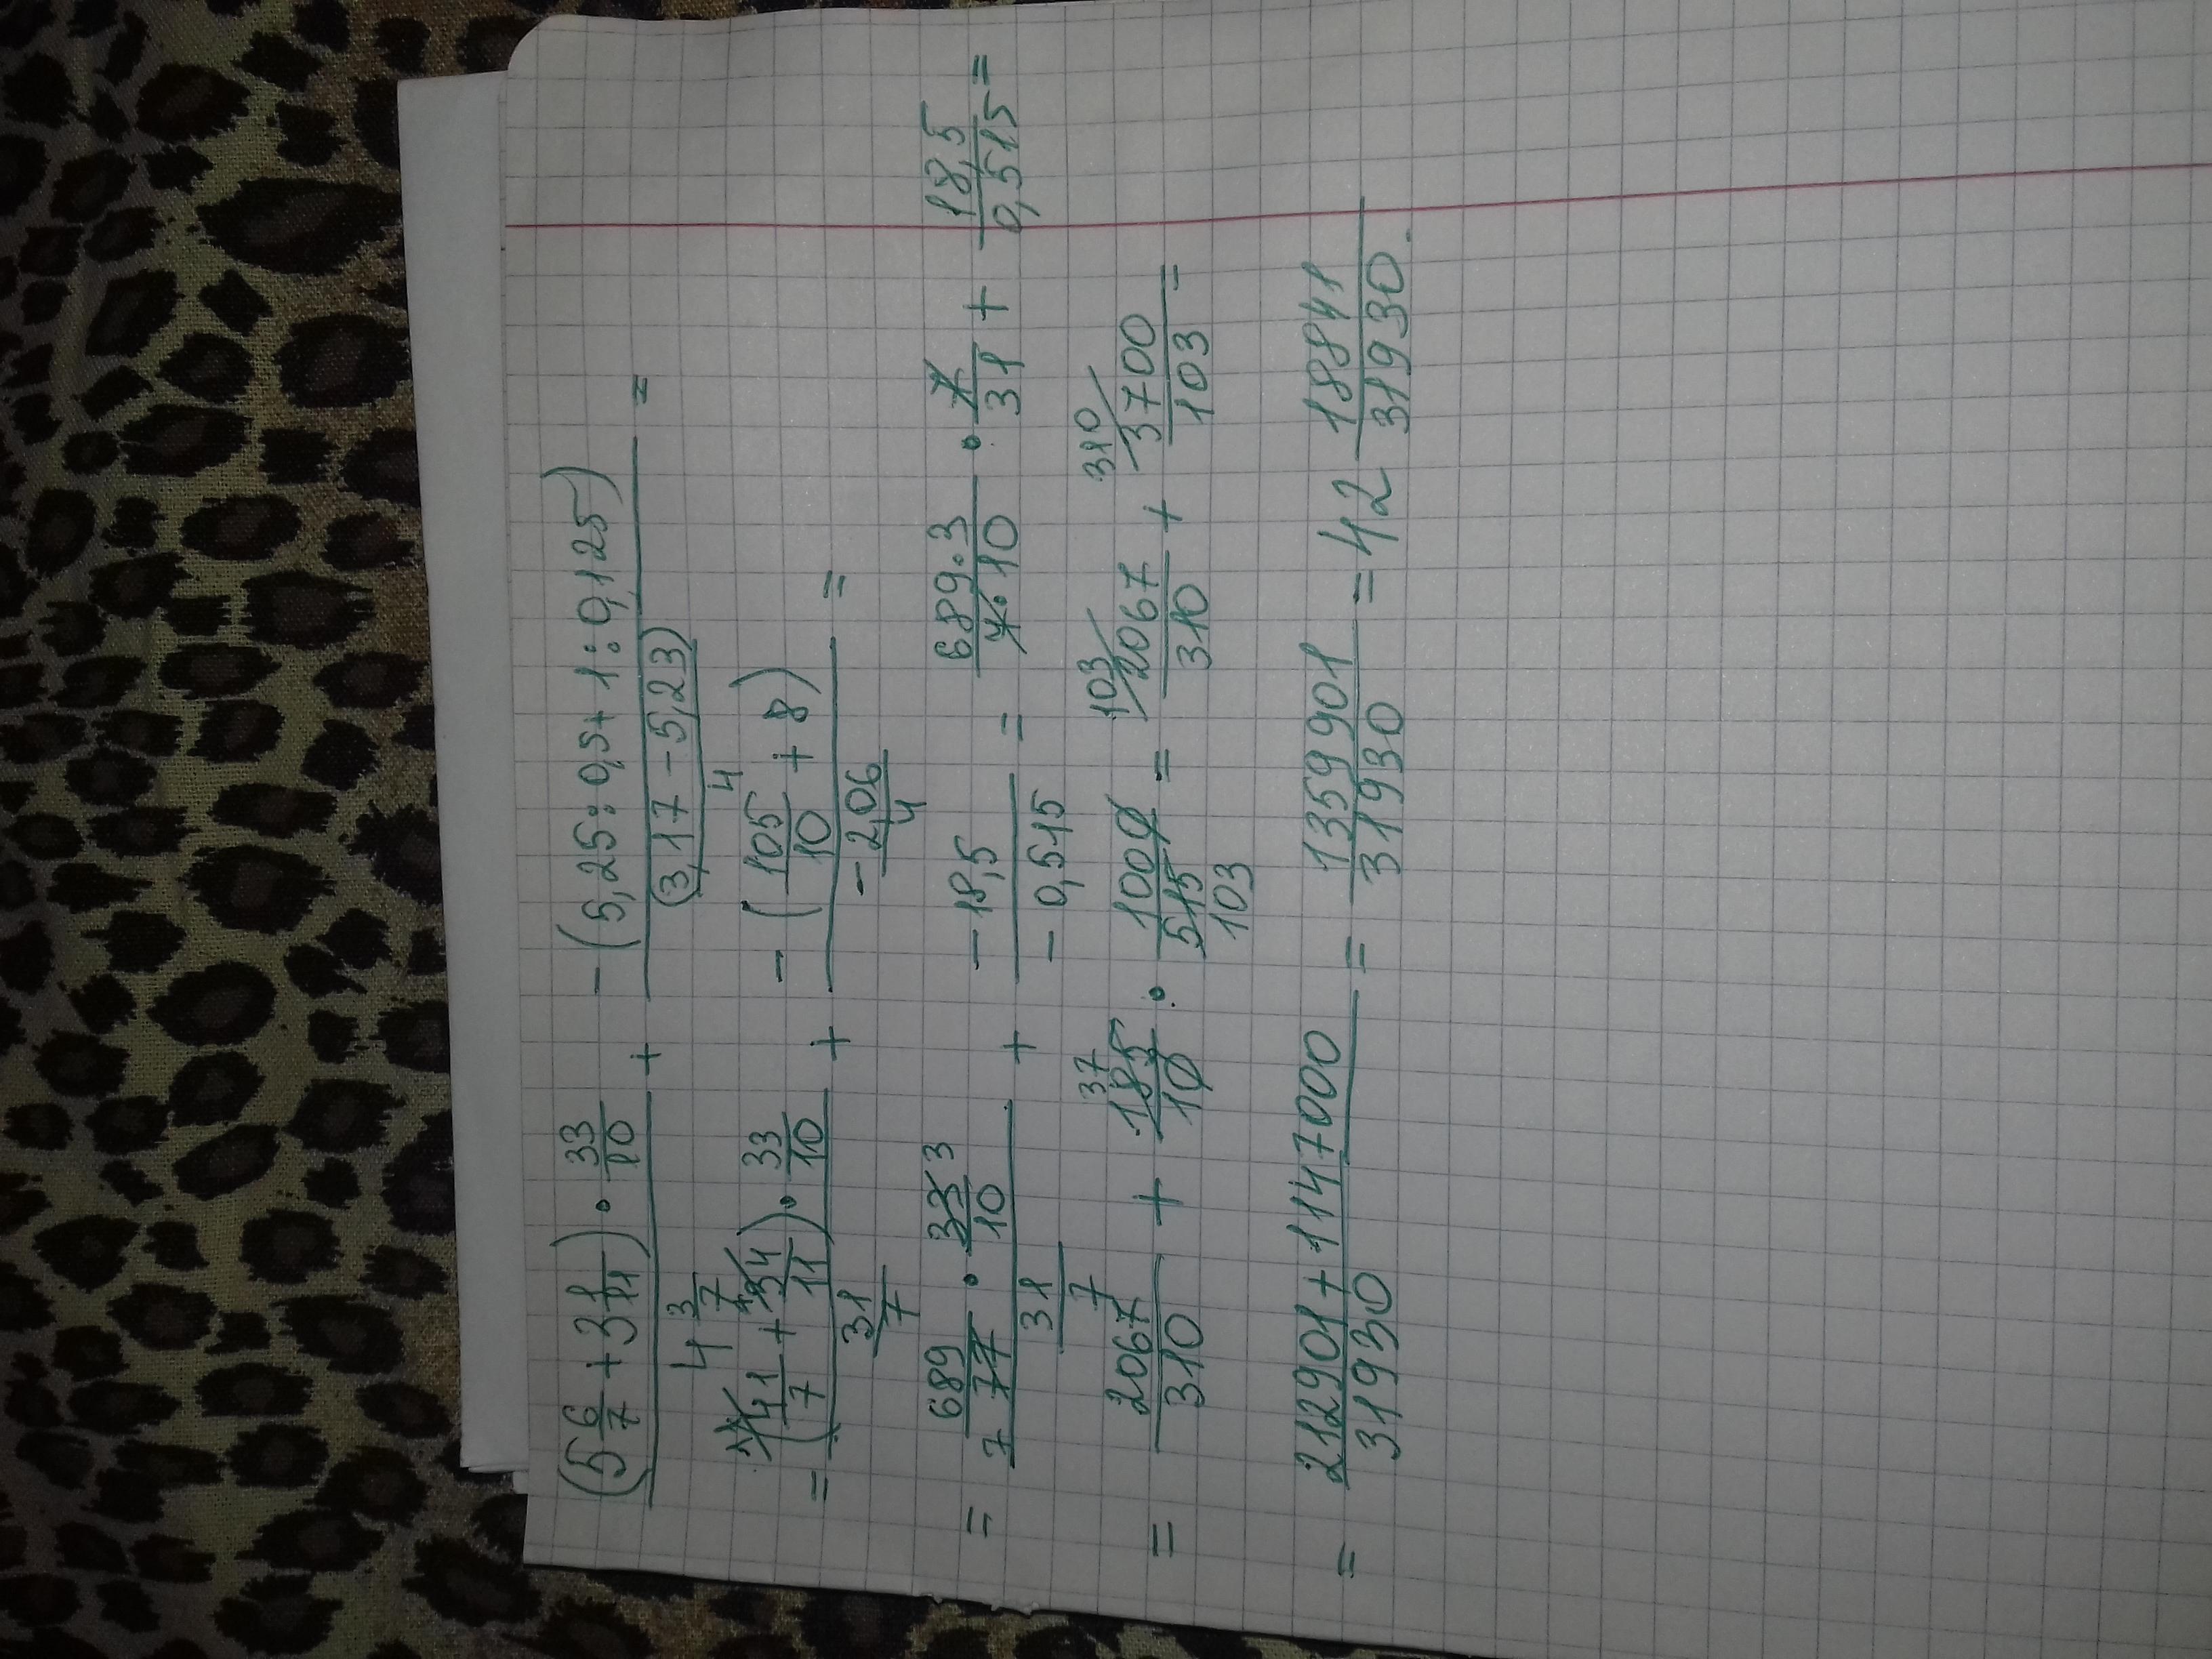 (5 6/7 + 3 1/11) · 33/10 / 4 3/7 + −(5,25 : 0,5 + 1 : 0,125) / ((3,17 − 5,23)/4) =
= (41/7 + 34/11) · 33/10 / (31/7) + −(105/10 + 8) / (−2,06/4) =
= 689/77 · 33/10 / (31/7) + −18,5/−0,515 = 689·3/7·10 · 7/31 + 18,5/0,515 =
= 2067/310 + 185/10 · 1000/515 = 2067/310 + 3700/103 =
= 212901 + 1147000 / 31930 = 1359901/31930 = 42 18841/31930.